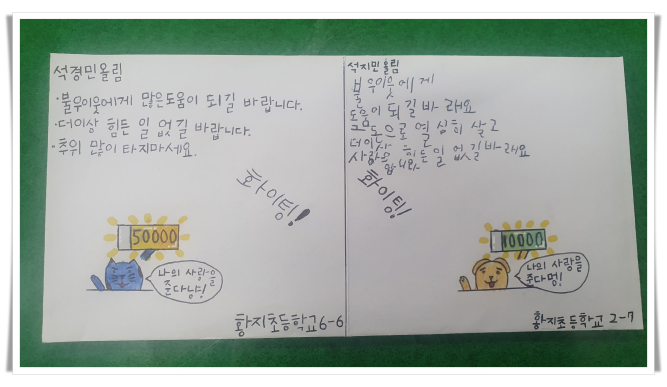 석경민올림
·불우이웃에게 많은도움이 되길 바랍니다.
·더이상 힘든 일 없길 바랍니다.
·추위 많이 타지마세요.
화이팅!
50000
나의 사랑을
준다냥!
황지초등학교 6-6
석지민올림
불우이웃에게
도움이 되길바래요
그돈으로 열심히 살고
더이상 힘든일 없길바래요
사랑
합니다.
화이팅!
10000
나의 사랑을
준다멍!
황지초등학교 2-7